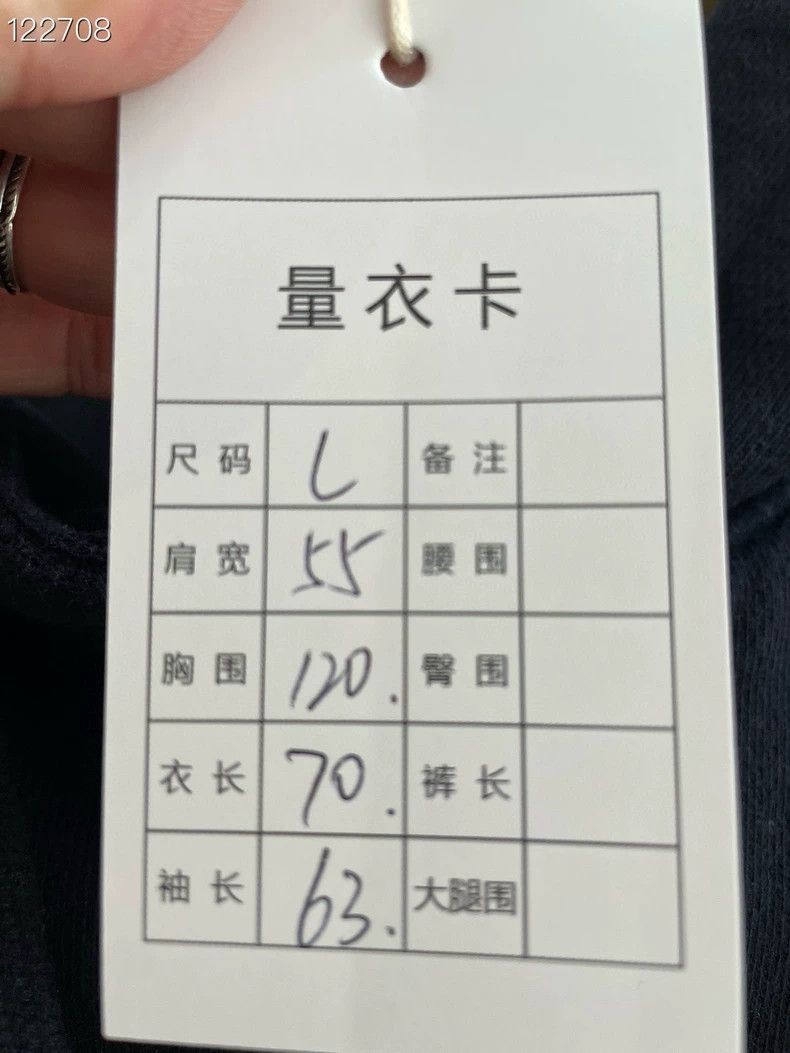 122708
量衣卡
尺码 L 备注
肩宽 55 腰围
胸围 120. 臀围
衣长 70. 裤长
袖长 63. 大腿围